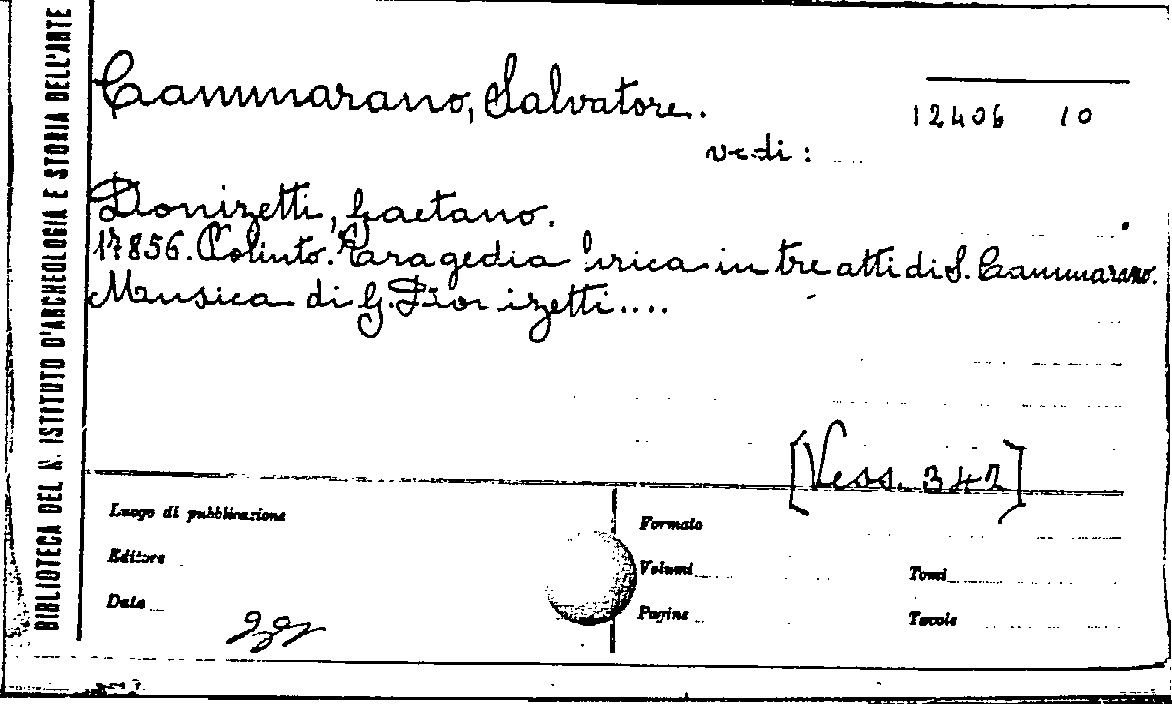 BIBLIOTECA DEL R. ISTITUTO D'ARCHEOLOGIA E STORIA DELL'ARTE
Cammarano, Salvatore.
12406 10
vedi:
Donizetti, Gaetano.
17856. Poliuto. Tragedia lirica in tre atti di S. Cammarano.
Musica di G. Donizetti....
[Vess. 347]
Luogo di pubblicazione
Formato
Editore
Volumi
Tomi
Data
Pagine
Tavole